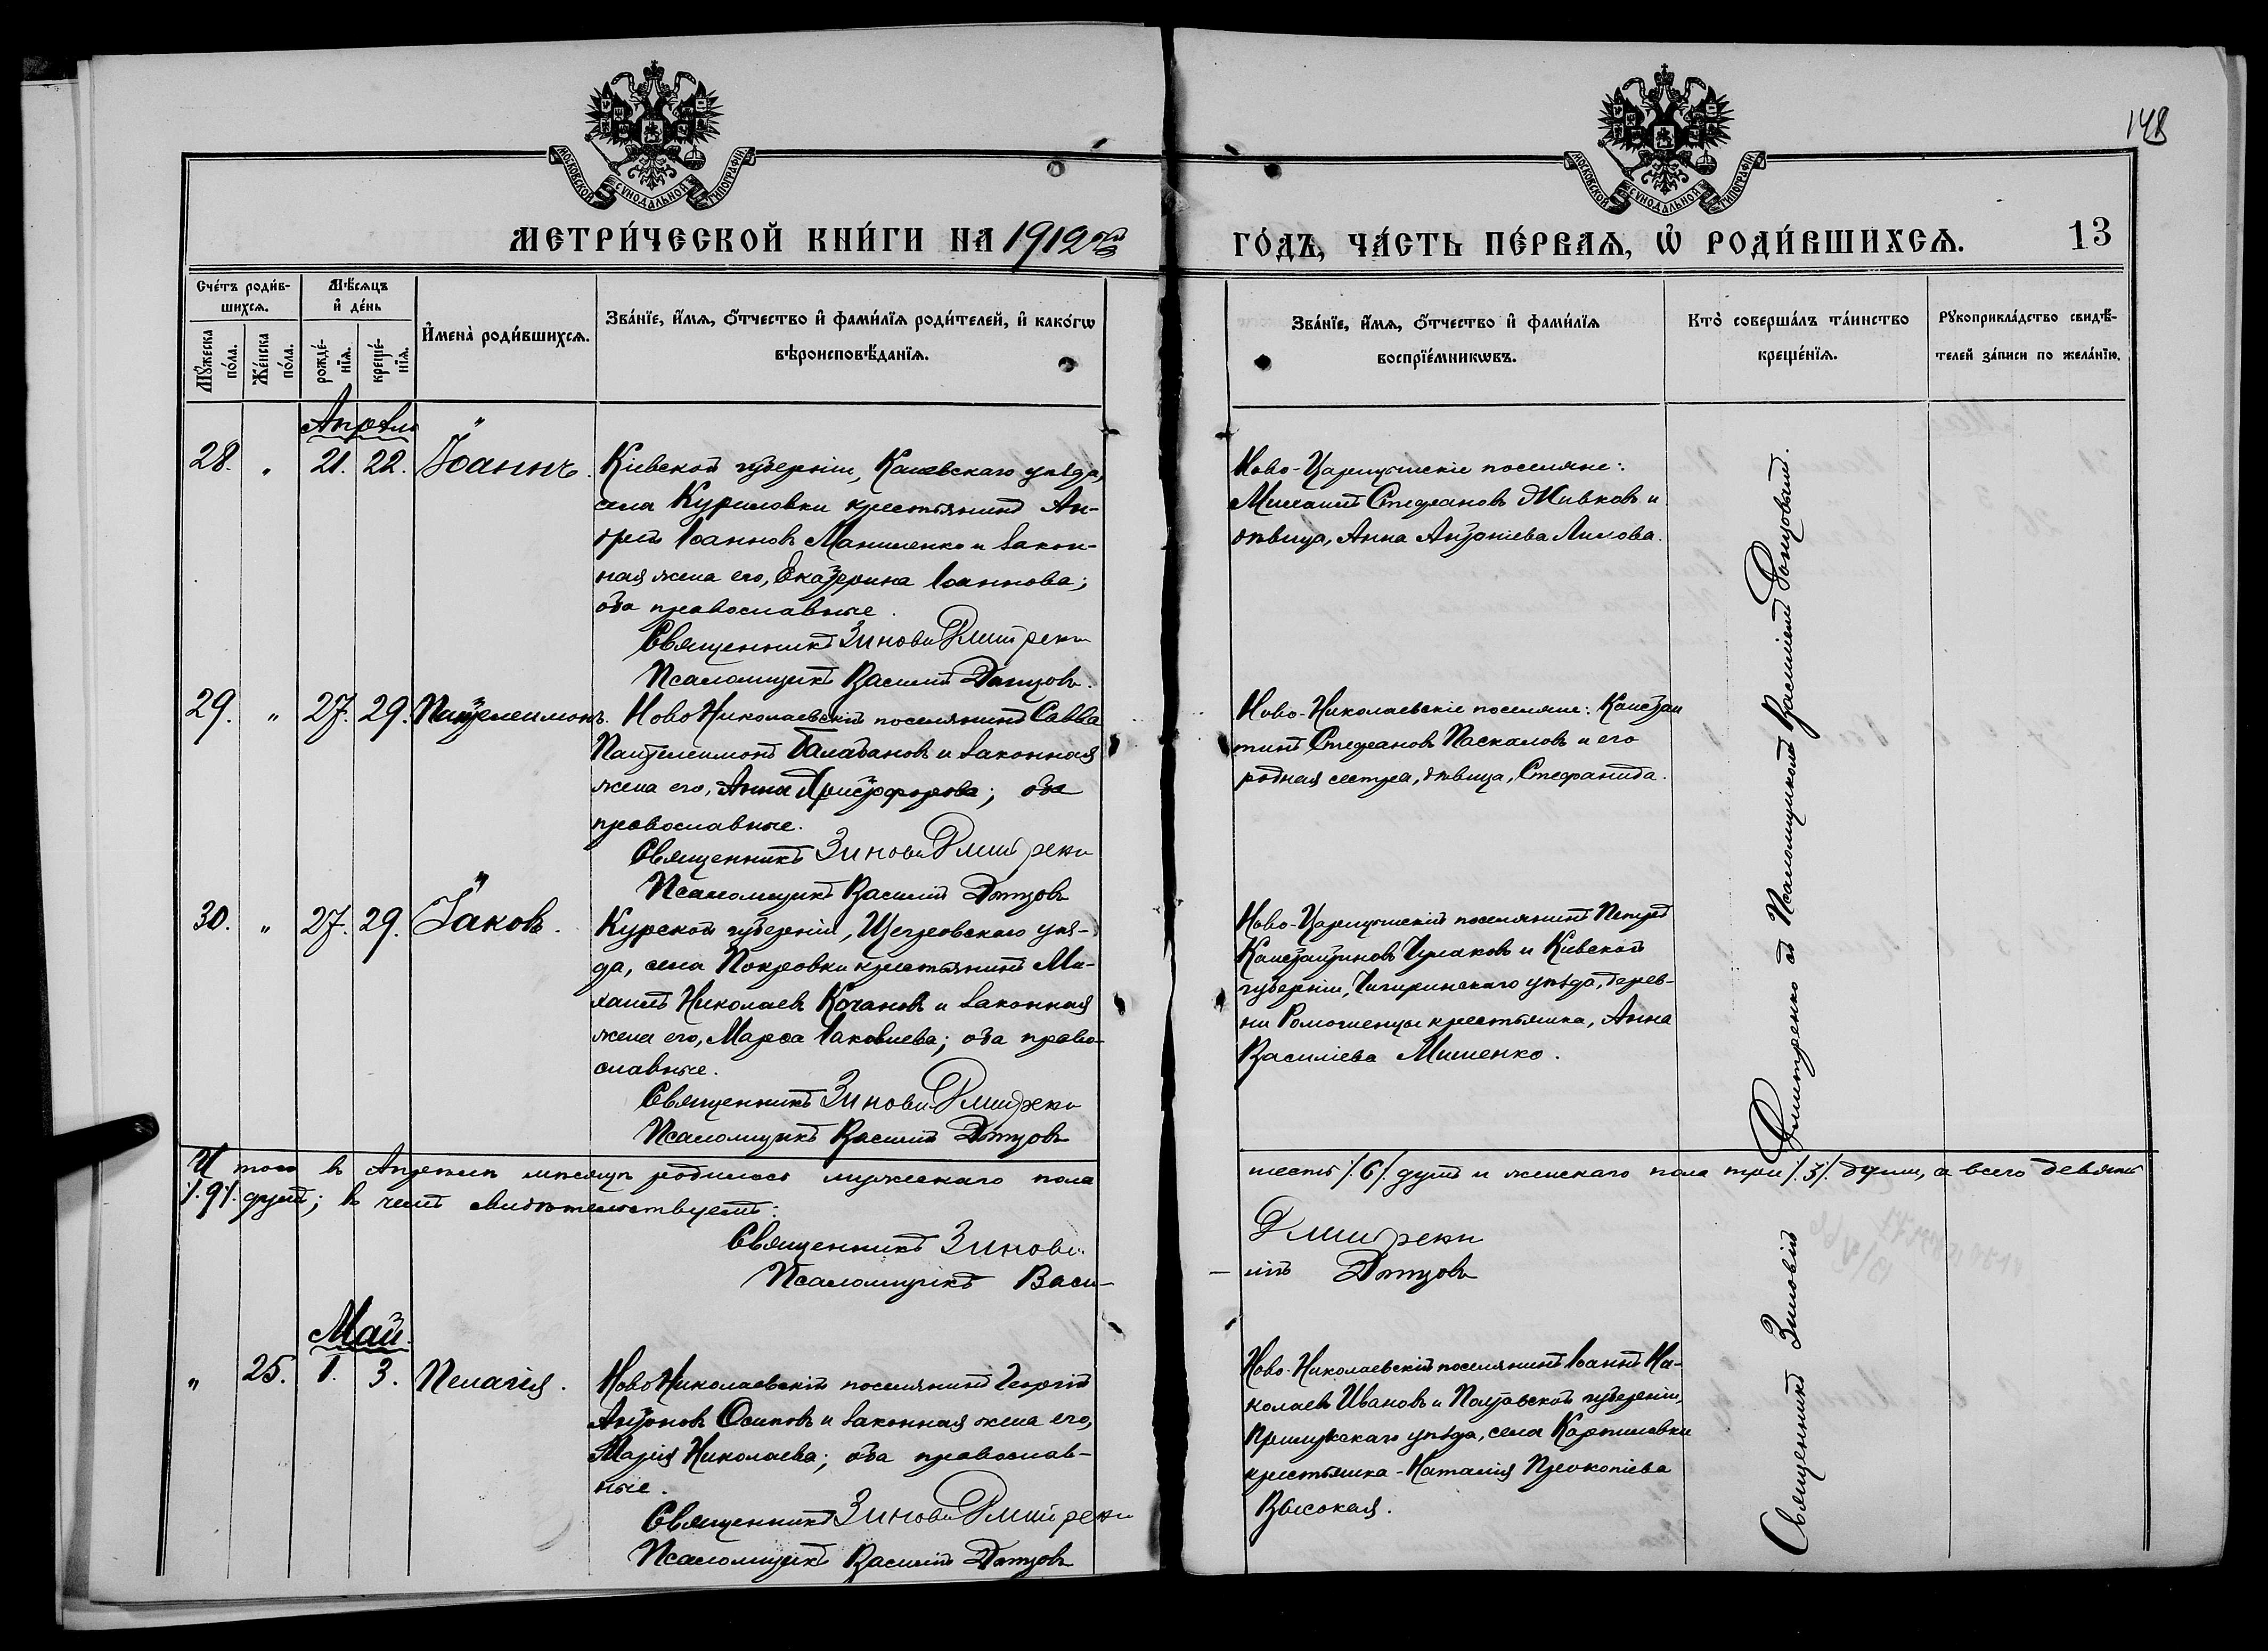 148
МОСКОВСКОЙ СѴНОДАЛЬНОЙ ТИПОГРАФІИ.
МОСКОВСКОЙ СѴНОДАЛЬНОЙ ТИПОГРАФІИ.
МЕТРИ́ЧЕСКОЙ КНИ́ГИ НА 1912ый ГО́ДЪ, ЧА́СТЬ ПЕ́РВАѦ, Ѽ РОДИ́ВШИХСѦ. 13
Сче́тъ роди́в-
шихсѧ.
Мꙋ́жеска по́ла.
Же́нска по́ла.
Мѣ́сѧцъ
и҆ де́нь
рожде́-
нїѧ.
креще́-
нїѧ.
И҆мена̀ роди́вшихсѧ.
Зва́нїе, и҆́мѧ, ѻ҆́тчество и҆ фами́лїѧ роди́телей, и҆ како́гѡ
вѣроисповѣ́данїѧ.
Зва́нїе, и҆́мѧ, ѻ҆́тчество и҆ фами́лїѧ
воспрїе́мникѡвъ.
Кто̀ соверша́лъ та́инство
креще́нїѧ.
Рꙋкоприкла́дство свидѣ́-
телей за́писи по жела́нїю.
Апрѣль
28. „ 21. 22. Іоаннъ.
Кіевской губерніи, Каневскаго уѣзда,
села Куриловки крестьянинъ Ан-
дрей Іоанновъ Манименко и закон-
ная жена его, Екатерина Іоаннова;
оба православные.
Священникъ Зиновій Дмитренко
Псаломщикъ Василій Донцовъ.
Ново-Царицынскіе поселяне:
Михаилъ Стефановъ Живковъ и
дѣвица, Анна Антоніева Ликова.
29. „ 27. 29. Пантелеимонъ.
Ново Николаевскій поселянинъ Савва
Пантелеимоновъ Балабановъ и законная
жена его, Анна Христофорова; оба
православные.
Священникъ Зиновій Дмитренко
Псаломщикъ Василій Донцовъ
Ново-Николаевскіе поселяне: Констан
тинъ Стефановъ Паскаловъ и его
родная сестра, дѣвица, Стефанида.
30. „ 27. 29. Іаковъ.
Курской губерніи, Щигровскаго уѣз-
да, села Покровки крестьянинъ Ми-
хаилъ Николаевъ Кочановъ и законная
жена его, Марѳа Іаковлева; оба право-
славные.
Священникъ Зиновій Дмитренко
Псаломщикъ Василій Донцовъ
Ново-Царицынскій поселянинъ Петръ
Константиновъ Чумаковъ и Кіевской
губерніи, Чигиринскаго уѣзда, дерев-
ни крестьянка, Анна
Василіева Мишенко.
И того въ Апрѣлѣ мѣсяцѣ родилось мужескаго пола шесть /.6/. душъ и женскаго пола три /.3/. души, а всего девять
/.9/. душъ; въ чемъ свидѣтельствуемъ:
Священникъ Зиновій Дмитренко
Псаломщикъ Васи-лій Донцовъ
Май.
„ 25. 1. 3. Пелагія.
Ново Николаевскій поселянинъ Георгій
Антоновъ Осиповъ и законная жена его,
Марія Николаева; оба православ-
ные.
Священникъ Зиновій Дмитренко
Псаломщикъ Василій Донцовъ
Ново-Николаевскій поселянинъ Іоаннъ Ни-
колаевъ Ивановъ и Полтавской губерніи,
Прилукскаго уѣзда, села Карпиловки
крестьянка - Наталія Прокопіева
Высокая.
Священникъ Зиновій Дмитренко съ Псаломщикомъ Василіемъ Донцовымъ.